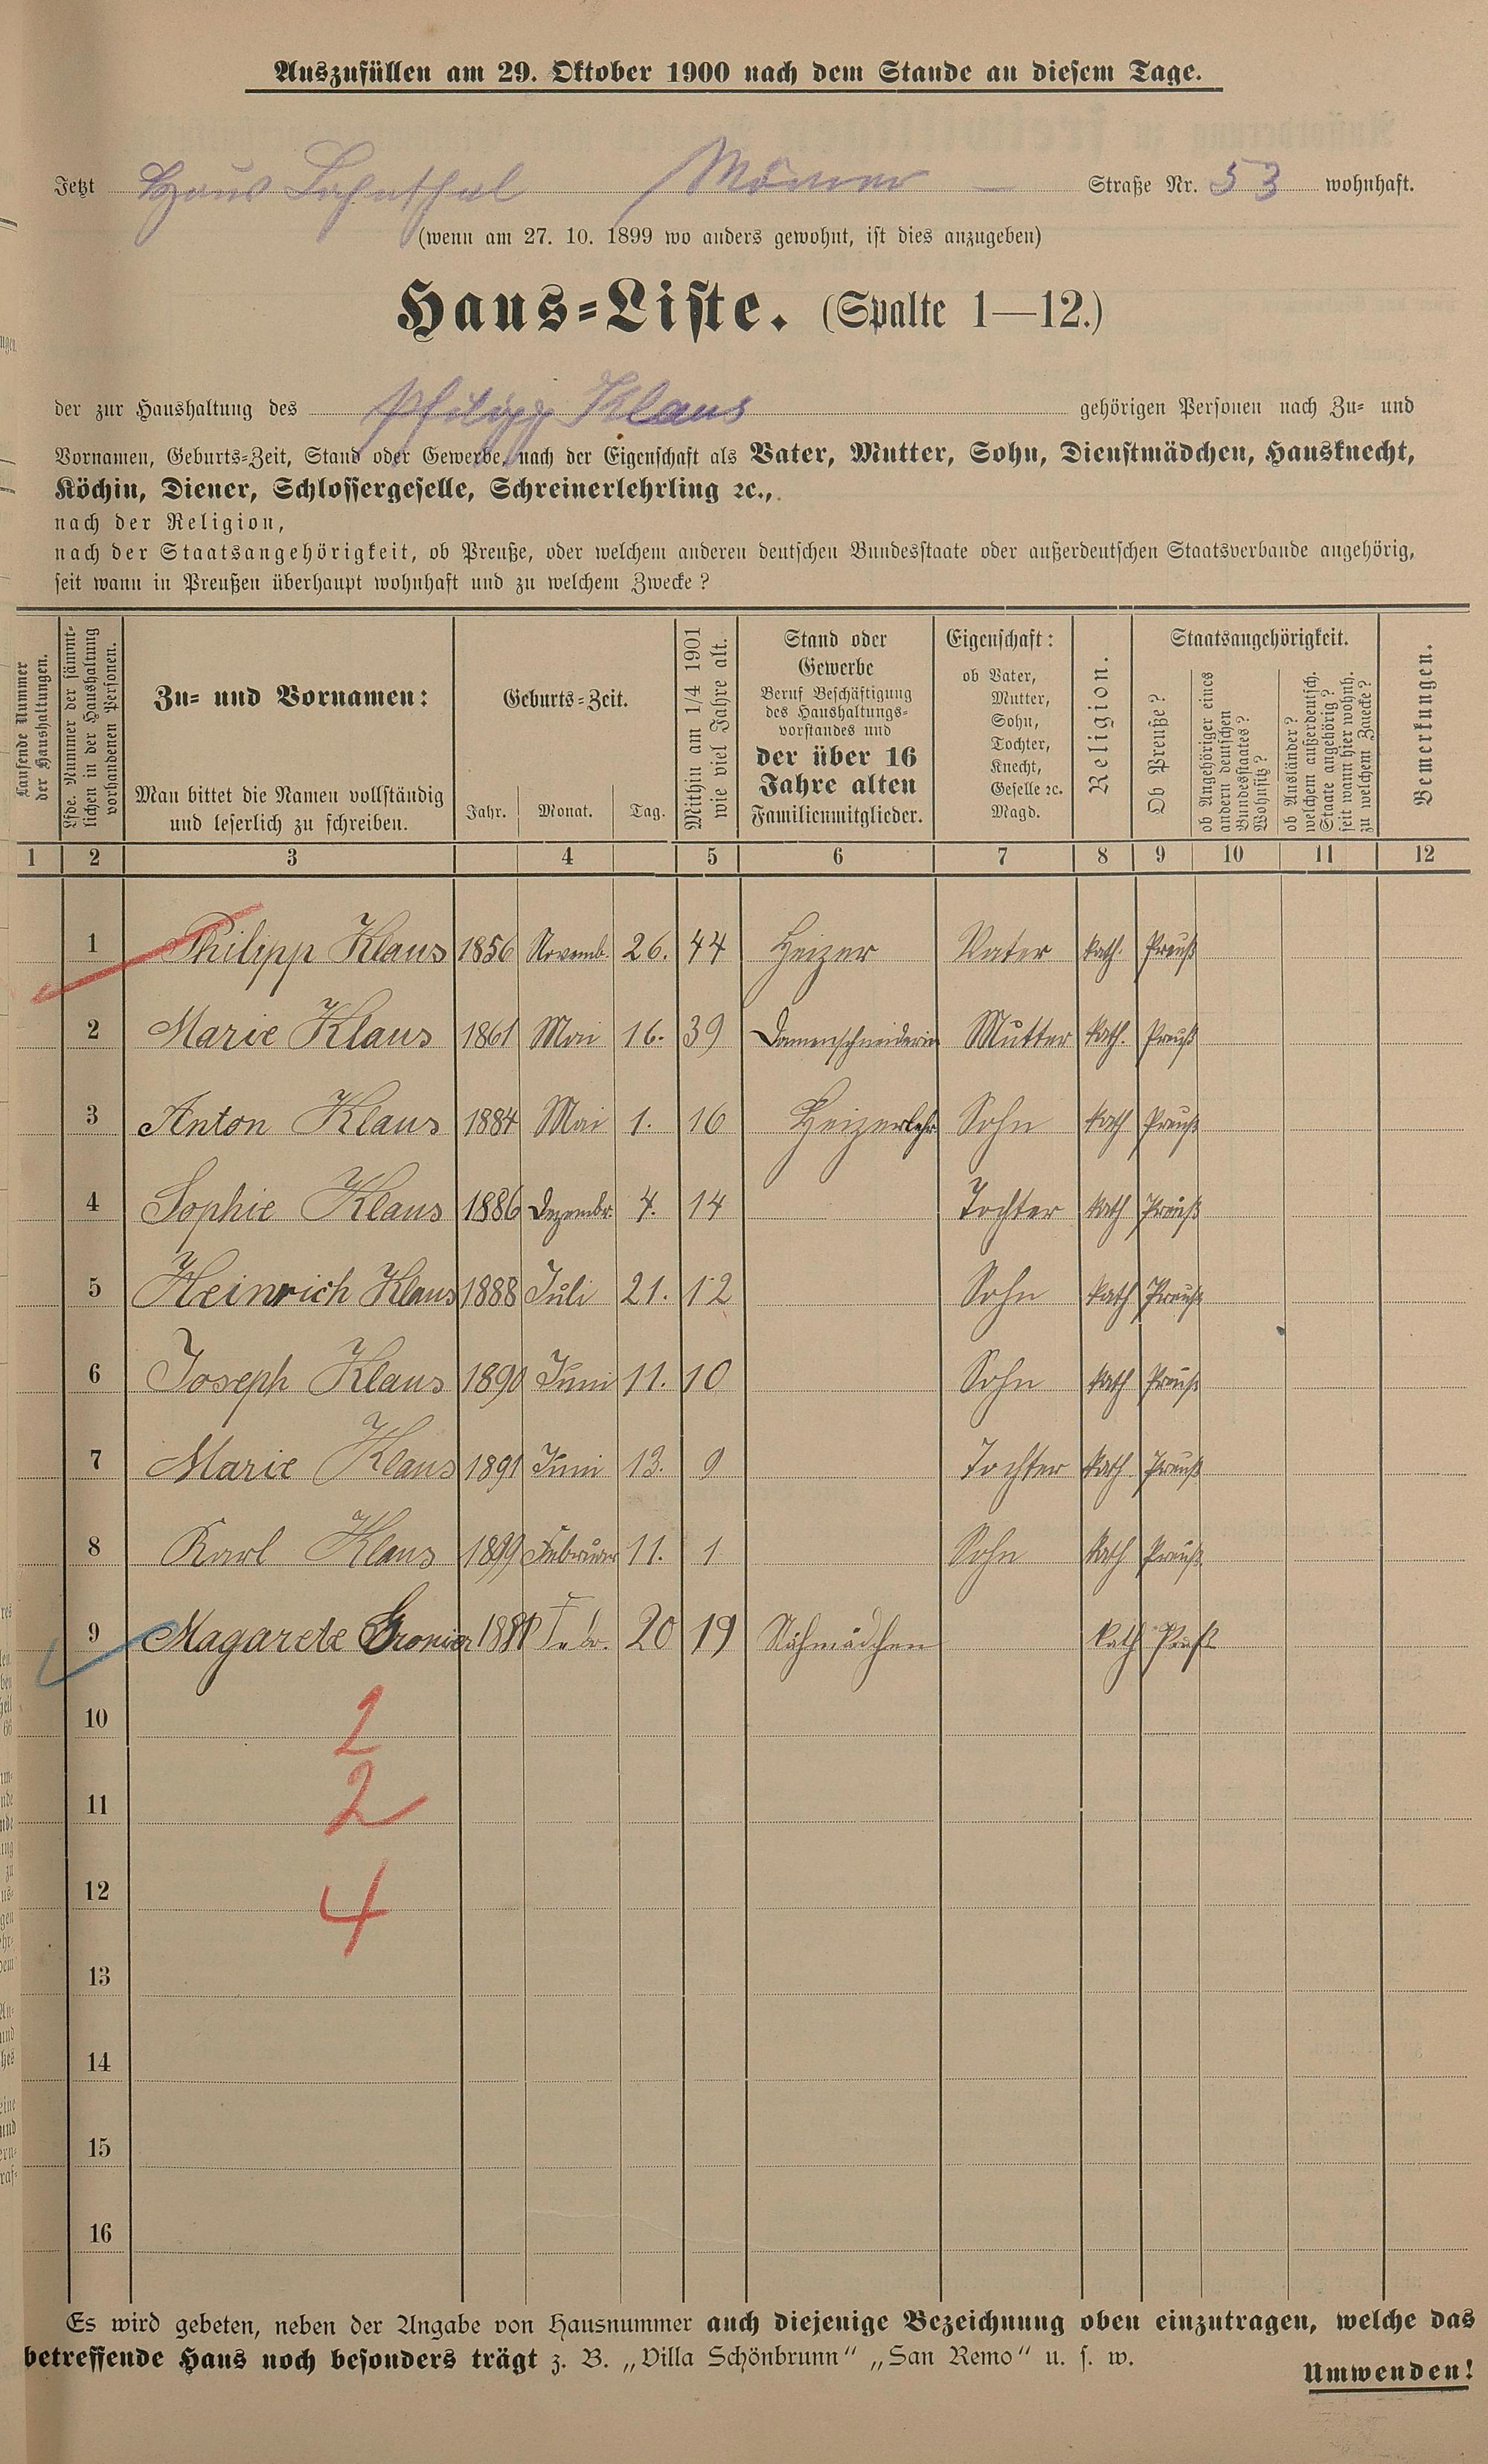 Auszufüllen am 29. Oktober 1900 nach dem Stande an diesem Tage.
Jetzt Haus Lahnthal Römer — Straße Nr. 53 wohnhaft.
(wenn am 27. 10. 1899 wo anders gewohnt, ist dies anzugeben)
Haus-Liste. (Spalte 1—12.)
der zur Haushaltung des Philipp Klaus gehörigen Personen nach Zu- und
Vornamen, Geburts-Zeit, Stand oder Gewerbe, nach der Eigenschaft als Vater, Mutter, Sohn, Dienstmädchen, Hausknecht,
Köchin, Diener, Schlossergeselle, Schreinerlehrling ꝛc.,
nach der Religion,
nach der Staatsangehörigkeit, ob Preuße, oder welchem anderen deutschen Bundesstaate oder außerdeutschen Staatsverbande angehörig,
seit wann in Preußen überhaupt wohnhaft und zu welchem Zwecke?
Laufende Nummer
der Haushaltungen.
Lfde. Nummer der sämmt-
lichen in der Haushaltung
vorhandenen Personen.
Zu- und Vornamen:
Man bittet die Namen vollständig
und leserlich zu schreiben.
Geburts-Zeit.
Jahr. Monat. Tag.
Mithin am 1/4 1901
wie viel Jahre alt.
Stand oder
Gewerbe
Beruf Beschäftigung
des Haushaltungs-
vorstandes und
der über 16
Jahre alten
Familienmitglieder.
Eigenschaft:
ob Vater,
Mutter,
Sohn,
Tochter,
Knecht,
Geselle ꝛc.
Magd.
Religion.
Staatsangehörigkeit.
Ob Preuße?
ob Angehöriger eines
andern deutschen
Bundesstaates?
Wohnsitz?
ob Ausländer?
welchem außerdeutsch.
Staate angehörig?
seit wann hier wohnh.
zu welchem Zwecke?
Bemerkungen.
1 2 3 4 5 6 7 8 9 10 11 12
1 Philipp Klaus 1856 Novemb. 26. 44 Heizer Vater kath. Preuß
2 Marie Klaus 1861 Mai 16. 39 Damenschneiderin Mutter kath. Preuß
3 Anton Klaus 1884 Mai 1. 16 Heizerlehr Sohn kath Preuß
4 Sophie Klaus 1886 Dezembr. 4. 14 Tochter kath Preuß
5 Heinrich Klaus 1888 Juli 21. 12 Sohn kath Preuß
6 Joseph Klaus 1890 Juni 11. 10 Sohn kath Preuß
7 Marie Klaus 1891 Juni 13. 9 Tochter kath Preuß
8 Karl Klaus 1899 Februar 11. 1 Sohn kath Preuß
9 Magarete 1881 Febr. 20 19 Nähmädchen kath Preuß
10 2
11 2
12 4
13
14
15
16
Es wird gebeten, neben der Angabe von Hausnummer auch diejenige Bezeichnung oben einzutragen, welche das
betreffende Haus noch besonders trägt z. B. „Villa Schönbrunn“ „San Remo“ u. s. w.
Umwenden!